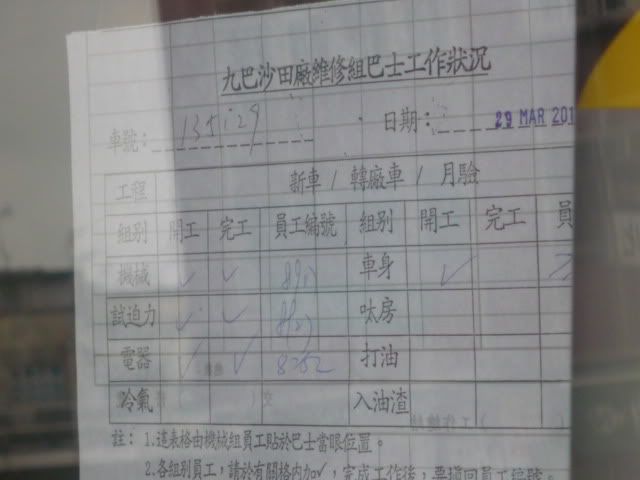 九巴沙田廠維修組巴士工作狀況
車號: 日期: 29 MAR 201
工程 新車 / 轉廠車 / 月驗
組別 開工 完工 員工編號 組別 開工 完工 員
機械 ✓ ✓ 車身 ✓
試迫力 ✓ ✓ 呔房
電器 ✓ ✓ 8252 打油
冷氣 入油渣
註: 1.這表格由機械組員工貼於巴士當眼位置。
2.各組別員工,請於有關格內加✓,完成工作後,要填回員工編號。